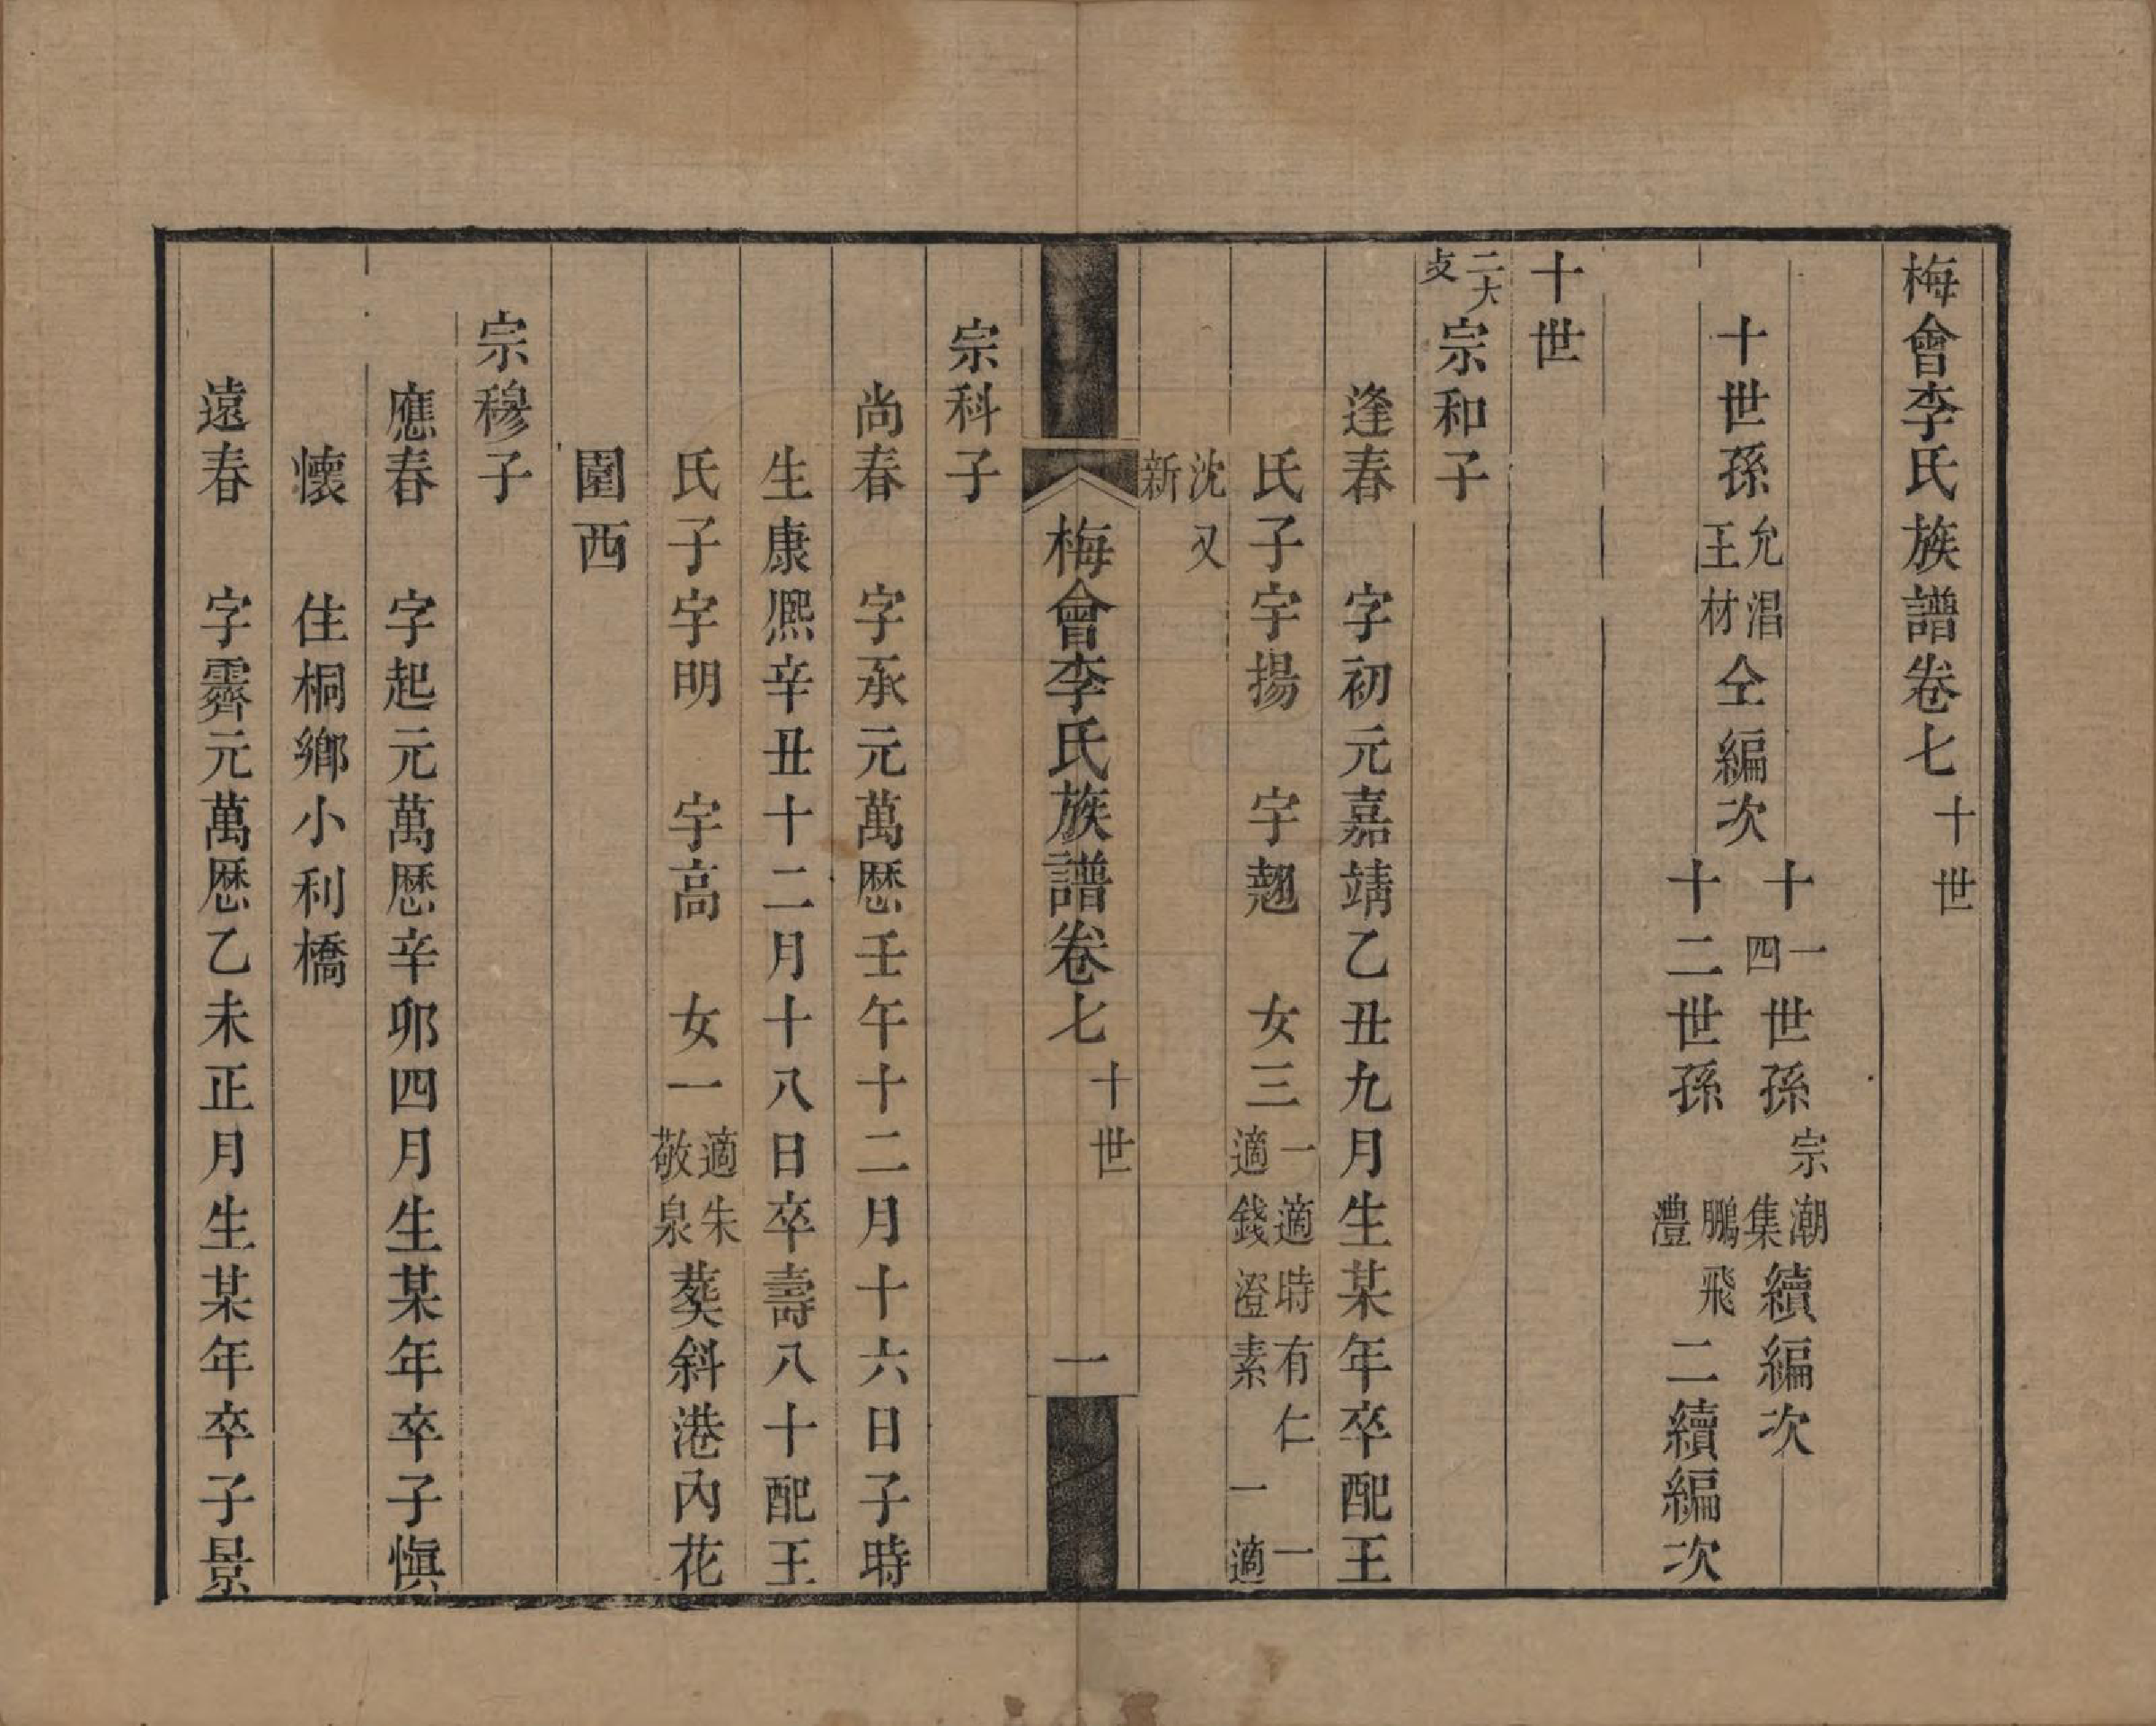 梅會李氏族譜卷七 十世
十世孫允淐玉材仝編次
十一四世孫宗潮集續編次
十二世孫鵬飛灃二續編次
十世
二大支宗和子
逢春 字初元嘉靖乙丑九月生某年卒配王
氏子宇揚 宇翹 女三一適時有仁 一適錢澄素 一適
沈又新
梅會李氏族譜卷七 十世 一
宗科子
尚春 字承元萬厯壬午十二月十六日子時
生康熈辛丑十二月十八日卒壽八十配王
氏子宇明 宇高 女一適朱敬泉葬斜港內花
園西
宗穆子
應春 字起元萬厯辛卯四月生某年卒子愼
懷 住桐鄉小利橋
遠春 字霽元萬厯乙未正月生某年卒子景